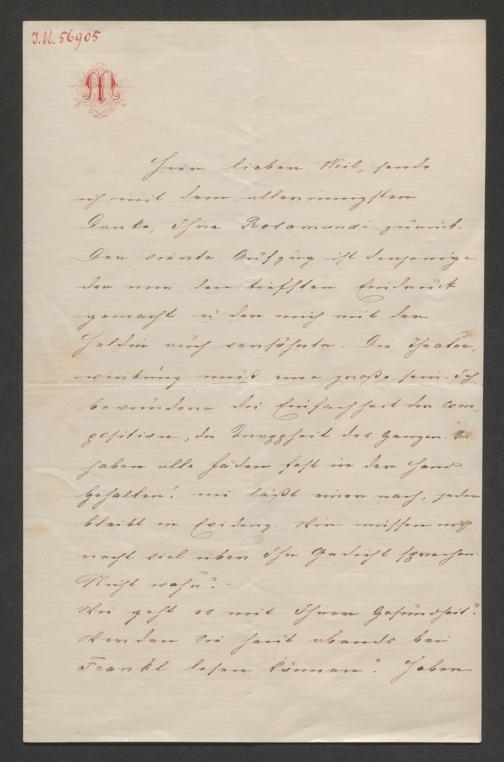 I.N. 56905
M
Hier lieber Weil, sende
ich mit dem allerinnigsten
Danke, Ihre Rosamunde zurück.
Der vierte Aufzug ist derjenige
der mir den tiefsten Eindruck
gemacht u der mich mit der
Heldin auch versöhnte. Die Theater,
wirkung muß eine große sein. Ich
bewundere die Einfachheit der Com,
position, die Knappheit des Ganzen. Sie
haben alle Fäden fest in der Hand
gehalten! nie läßt einer nach, jeder
bleibt in Evidenz. Wir müssen noch
recht viel über Ihr Gedicht sprechen.
Nicht wahr? –
Wie geht es mit Ihrer Gesundheit?
Werden Sie heut abends bei
Frankl lesen können? Haben